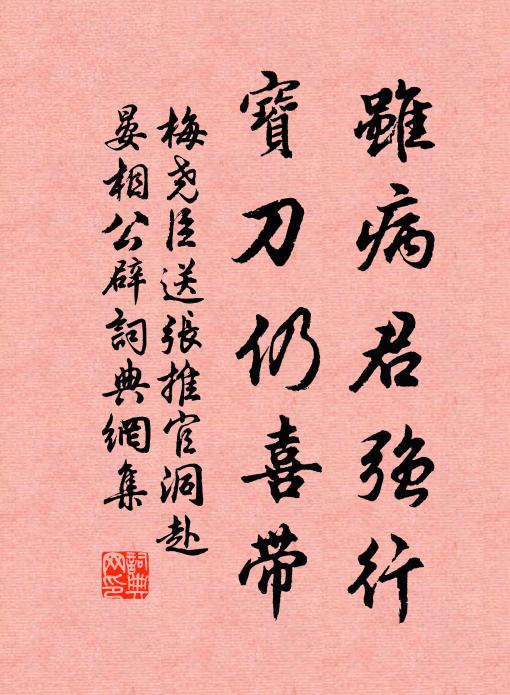 雖病君強行
寶刀仍喜帶
梅堯臣送張推官洞赴
晏相公辟詞典網集
詞典網印